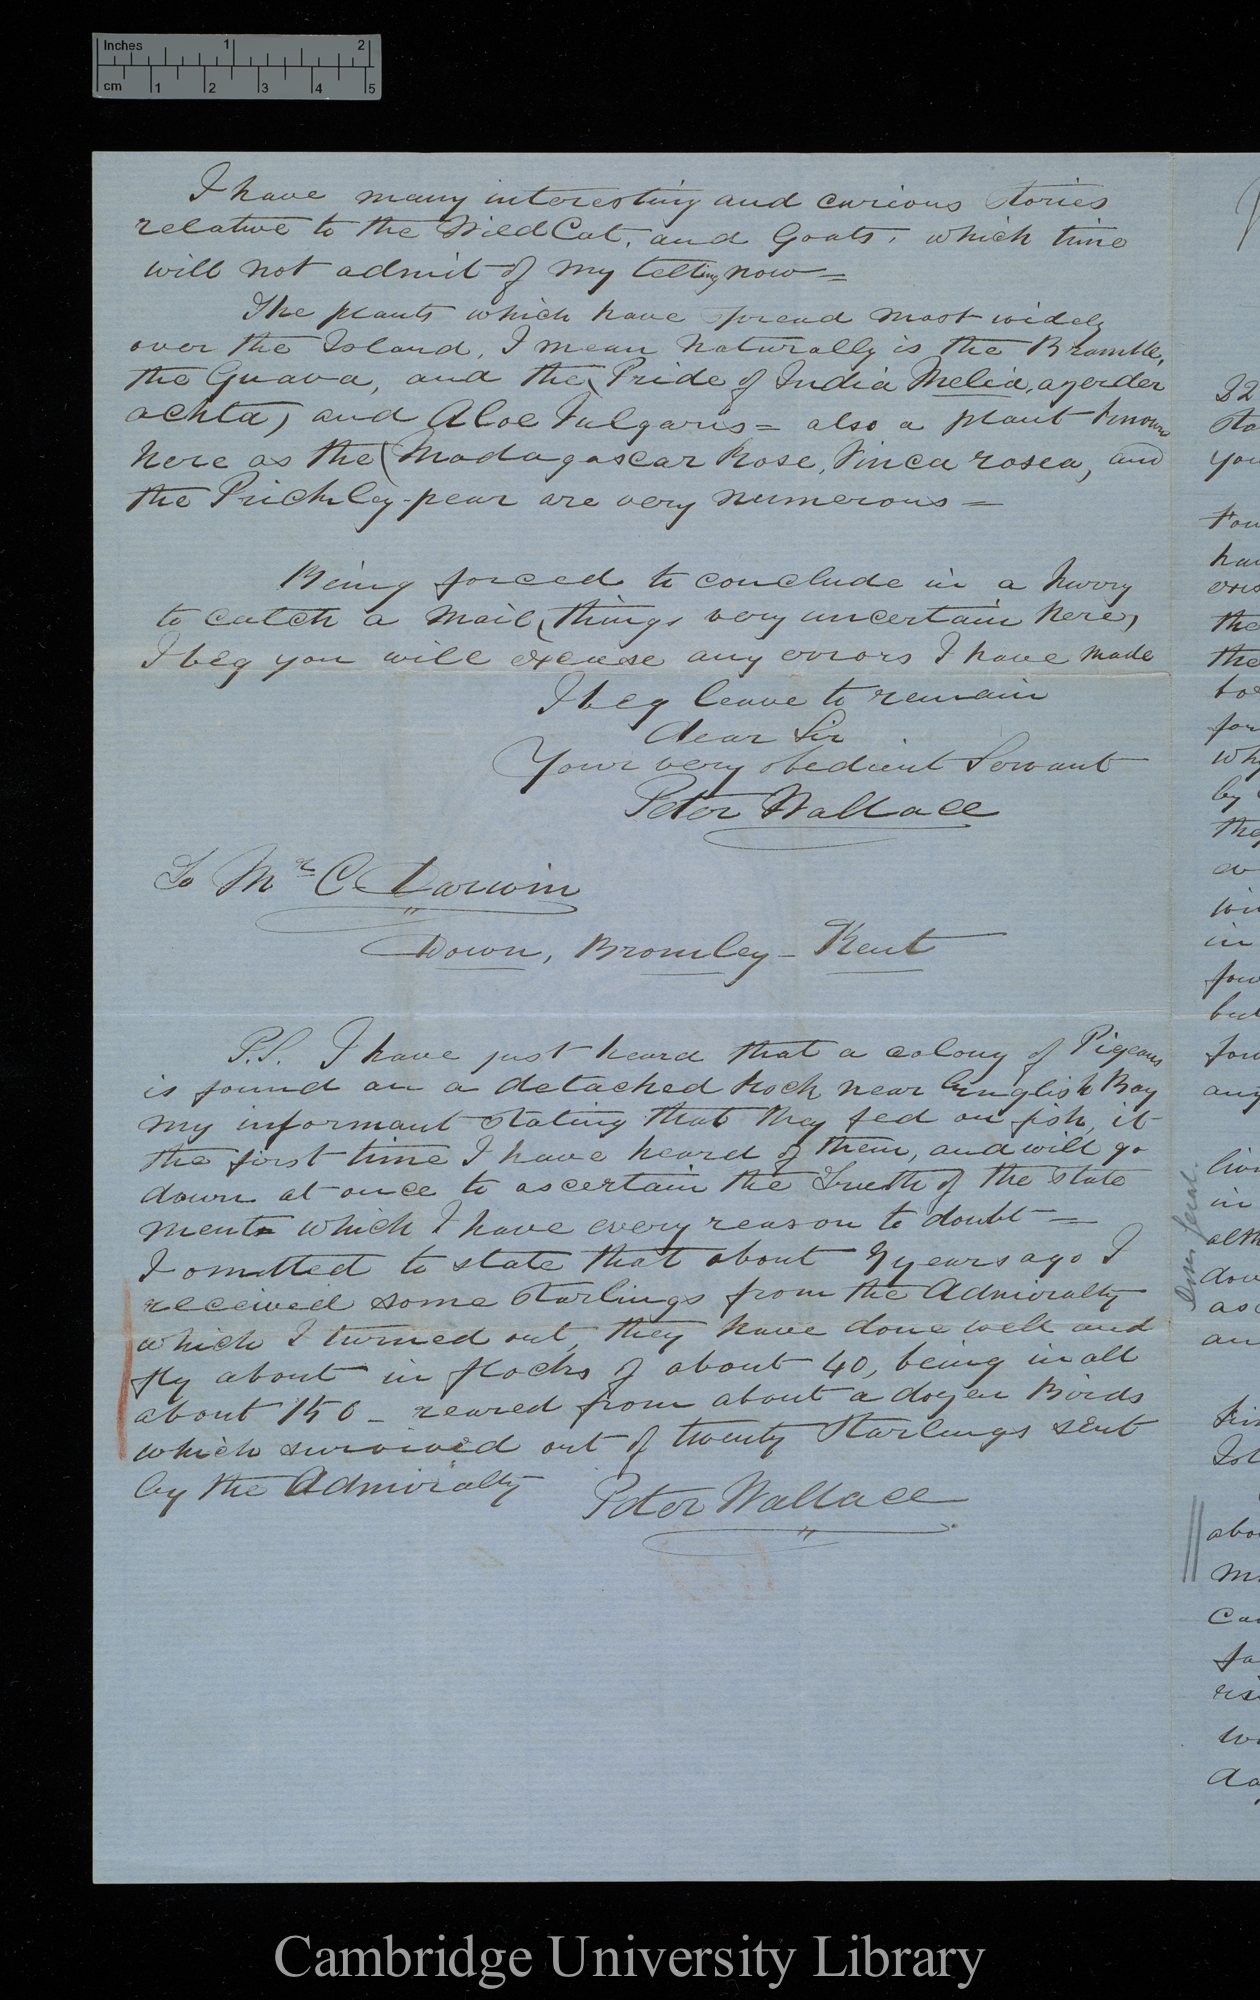 Inches 1 2
cm 1 2 3 4 5
I have many interesting and curious stories
relative to the Wild Cat, and Goats, which time
will not admit of my telling now =
The plants which have spread most widely
over the Island, I mean naturally is the Bramble,
the Guava, and the (Pride of India Melia, azerder
achta) and Aloe Vulgaris = also a plant known
here as the (Madagascar Rose, Vinca rosea, and
the Prickley-pear are very numerous =
Being forced to conclude in a hurry
to catch a mail, (things very uncertain here)
I beg you will excuse any errors I have made
I beg leave to remain
dear Sir
Your very obedient Servant
Peter Wallace
To Mr C Darwin
Down, Bromley - Kent
P.S. I have just heard that a colony of Pigeons
is found on a detached Rock near English Bay
my informant stating that they fed on fish, it
the first time I have heard of them, and will go
down at once to ascertain the Trueth of the state
ment which I have every reason to doubt =
I omitted to state that about years ago I
received some Starlings from the Admiralty
which I turned out, they have done well and
fly about in flocks of about 40, being in all
about 150 - reared from about a dozen Birds
which survived out of twenty Starlings sent
by the Admiralty
Peter Wallace
Cambridge University Library